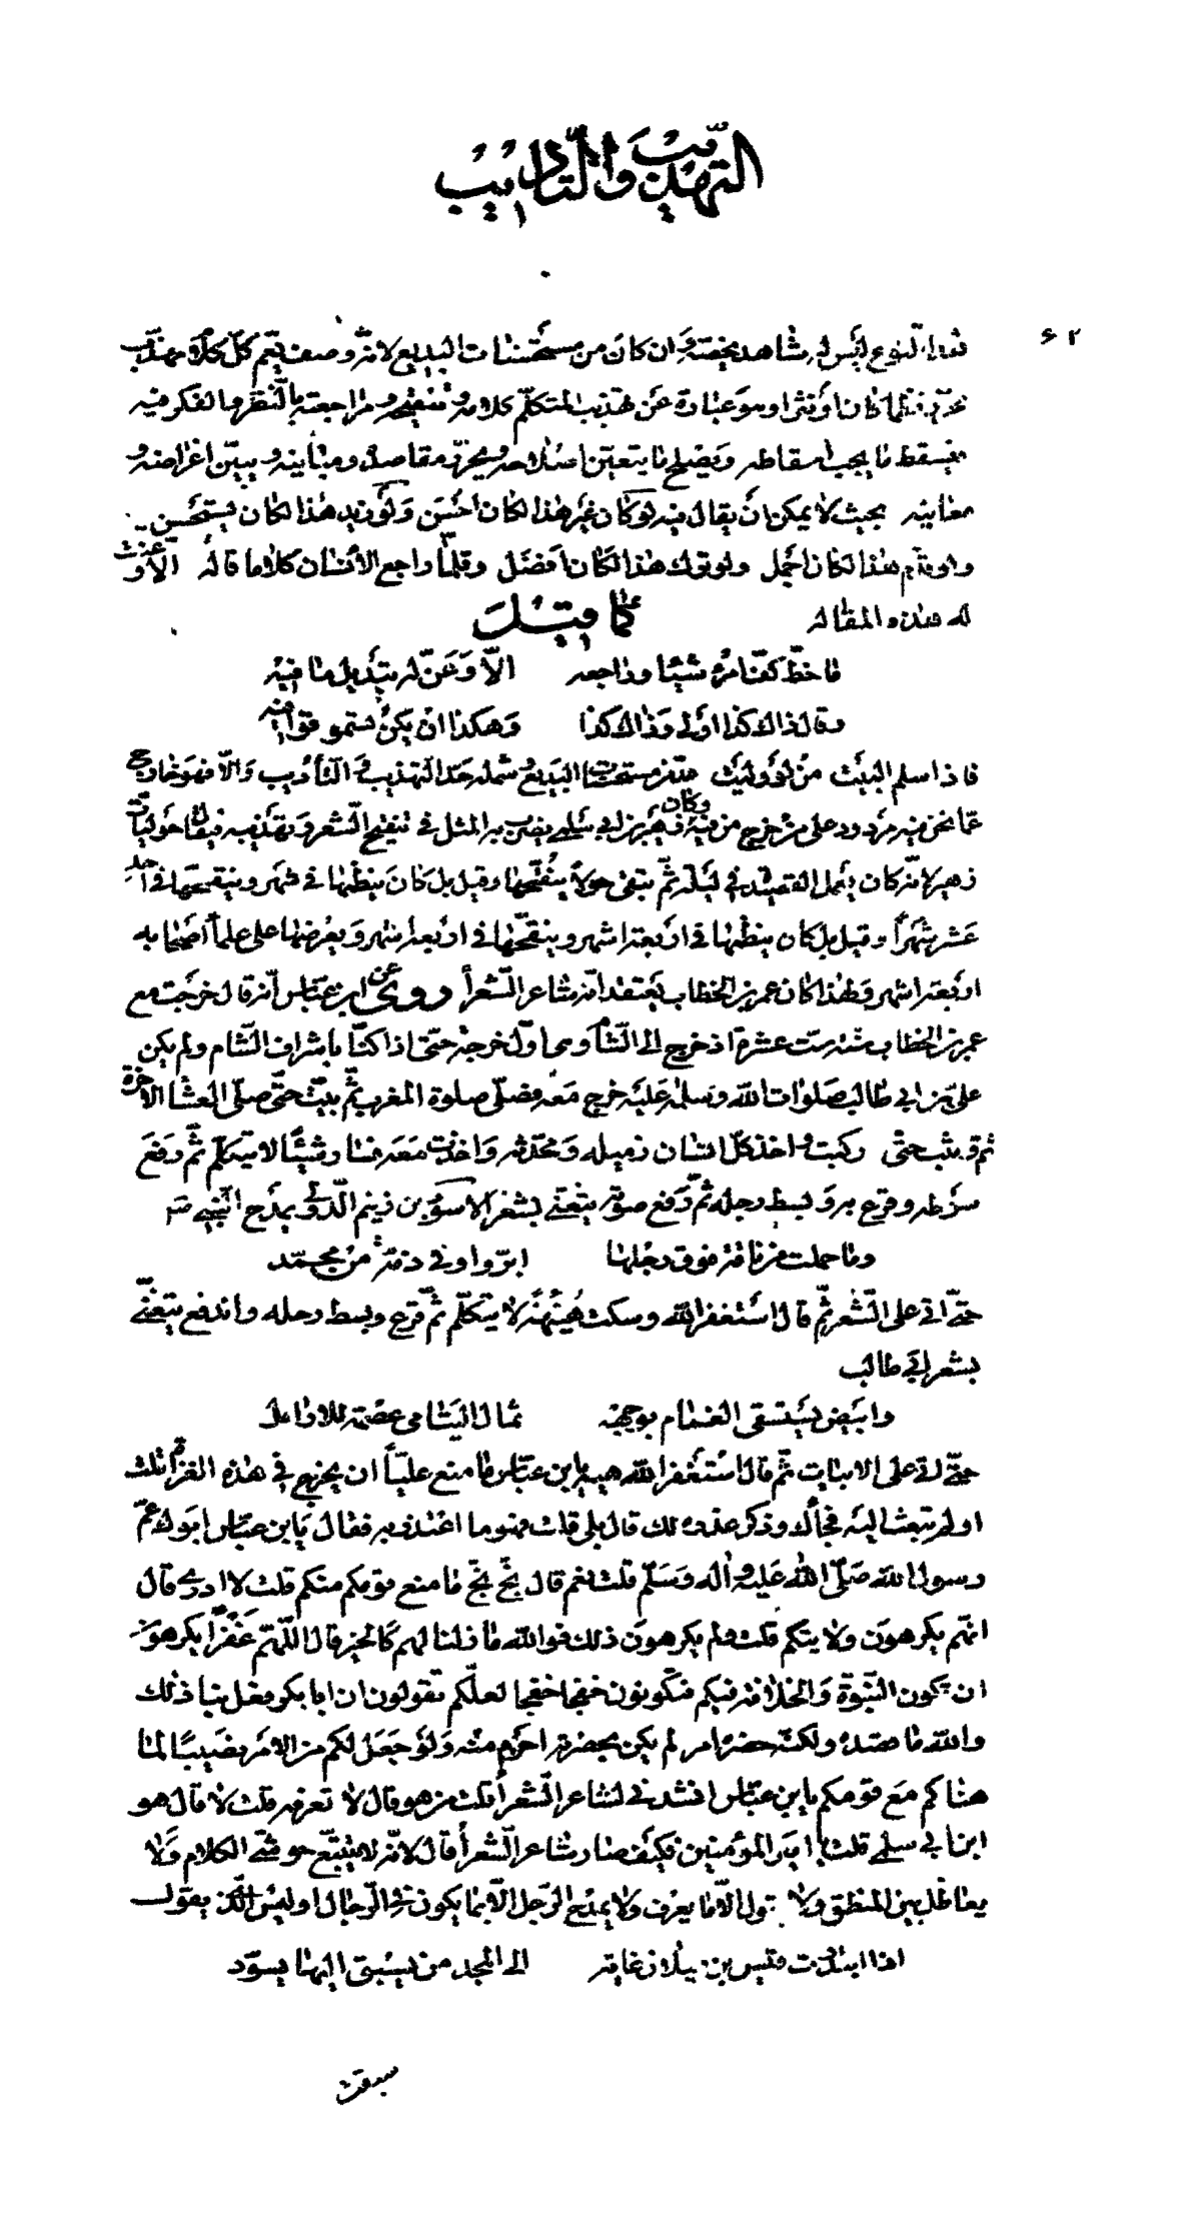 التهذيب والتأديب
۶۲
هذا النوع ليس له شاهد يخصه وان كان من مستحسنات البديع لانه وصف يعم كل كلام مهذب
نظما كان او نثرا وهو عبارة عن تهذيب المتكلم كلامه وتنقيحه ومراجعته بالنظر والفكر فيه
فيسقط ما يجب اسقاطه ويصلح ما يتعين اصلاحه ويحرر مقاصده ومبانيه ويبين اغراضه و
معانيه بحيث لا يمكن أن يقال فيه لو كان غير هذا لكان احسن ولو زيد هذا لكان يستحسن
ولو قدم هذا لكان اجمل ولو ترك هذا لكان افضل وقلما راجع الأنسان كلاما قاله الا وعنت
له هذه المقاله كما قيل
ما خط كف امرء شيئا وراجعه الا وعن له تبديل ما فيه
وقال ذاك كذا اولى وذاك كذا وهكذا ان يكن تسمو قوافيه
فاذا سلم البيت من لو وليت عد من مستحسنات البديع وشمله حد التهذيب والتأديب والا فهو خارج
عما نحن فيه مردود على من خرج من فيه وكان زهير بن ابي سلمى يضرب به المثل في تنقيح الشعر وتهذيبه فيقال حوليات
زهير لانه كان يعمل القصيدة في ليلة ثم يبقى حولا ينقحها وقيل بل كان ينظمها في شهر وينقحها في احد
عشر شهرا وقيل بل كان ينظمها في اربعة اشهر وينقحها في اربعة اشهر ويعرضها على علماء اصحابه
اربعة اشهر ولهذا كان عمر بن الخطاب يعتقد انه شاعر الشعرأ روى عن ابن عباس انه قال خرجت مع
عمر بن الخطاب سنة ست عشرة اذ خرج الى الشام وهى اول خرجة حتى اذا كنا باشراف الشام ولم يكن
على بن ابي طالب صلوات الله وسلامه عليه خرج معه فصلى صلوة المغرب ثم بيت حتى صلى العشا الاخرة
ثم ركبت واخذ كل انسان زميله ومحدثه واخذت معه عنا وشيئا لا يتكلم ثم رفع
سوطه وقرع به وبسط رجله ثم رفع صوته يتغنى بشعر الاسود بن زنيم الدؤلى يمدح النبي ص
وما حملت من ناقة فوق رحلها ابر واوفى ذمة من محمد
حتى اتى على الشعر ثم قال استغفر الله وسكت هنيهة لا يتكلم ثم قرع وبسط رحله واندفع يتغنى
بشعر ابي طالب
وابيض يستسقى الغمام بوجهه ثمال اليتامى عصمة للارامل
حتى اتى على الابيات ثم قال استغفر الله هيه يا بن عباس ما منع عليا ان يخرج في هذه الغزاة قلت
او لم تبعث اليه فجاءك وذكر عذره لك قال بلى قلت فهو ما اعتذر به فقال يا بن عباس ابوك عم
رسول الله صلى الله عليه واله وسلم قلت نعم قال بخ بخ ما منع قومكم منكم قلت لا ادرى قال
انهم يكرهون ولايتكم قلت ولم يكرهون ذلك فوالله ما زلنا لهم كالخير قال اللهم غفرا يكرهون
ان تكون النبوة والخلافة فيكم فتكونون خفجا خفجا لعلكم تقولون ان ابا بكر فعل بنا ذلك
والله ما قصده ولكنه حضره امر لم يكن بحضرته احزم منه ولو جعل لكم من الامر نصيبا لما
هنا كم مع قومكم يا بن عباس انشدني لشاعر الشعرأ قلت من هو قال لا تعرفه قلت لا قال هو
ابن ابي سلمى قلت يا امير المؤمنين فكيف صار شاعر الشعرأ قال لانه لا يتتبع حوشى الكلام ولا
يعاظل بين المنطق ولا يقول الا ما يعرف ولا يمدح الرجل الا بما يكون في الرجال اوليس الذي يقول
اذا ابتدرت قيس بن عيلان غاية الى المجد من يسبق اليها يسود
سبقت